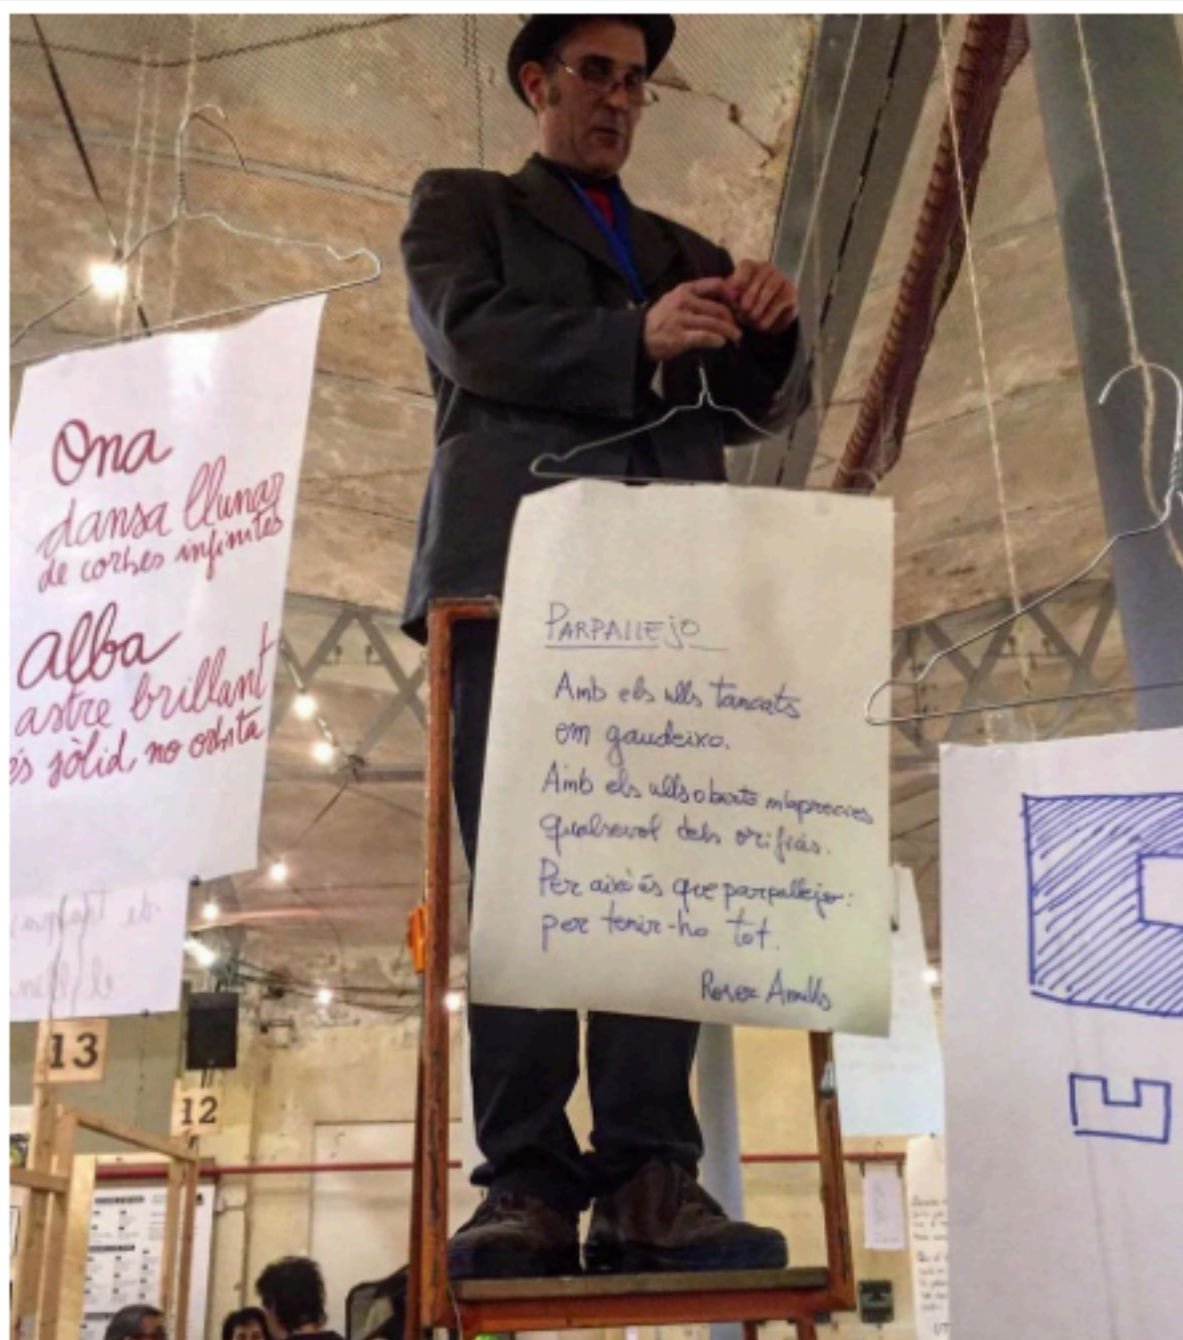 Ona
dansa llunar
de corbes infinites
Alba
astre brillant
és sòlid, no orbita
PARPALLEJO
Amb els ulls tancats
em gaudeixo.
Amb els ulls oberts m'aprecies
qualsevol dels orificis.
Per això és que parpallejo:
per tenir-ho tot.
Roser Amills
13
12